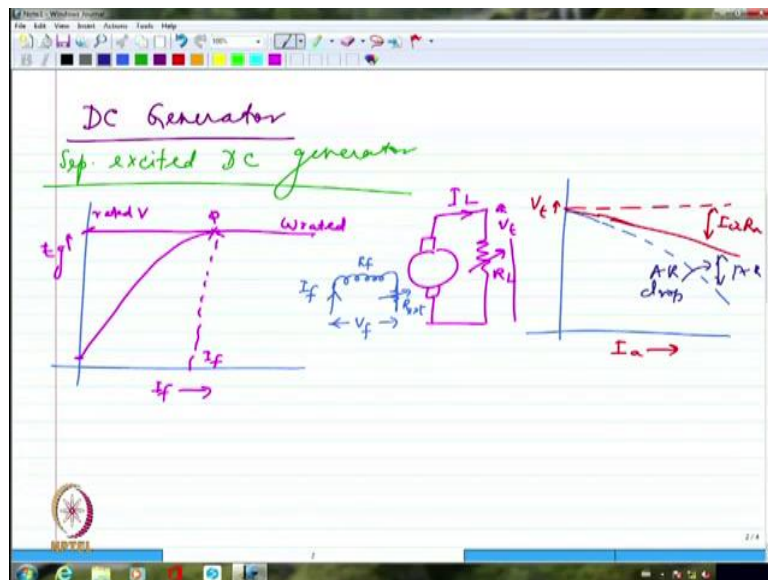 Note1 - Windows Journal
File Edit View Insert Actions Tools Help
100%
B I
DC Generator
Sep. excited DC generator
rated V
ωrated
Eg↑
If
If →
If
Rf
Rext
Vf
IL
Vt
RL
Vt↑
IaRa
AR
drop
AR
Ia →
NPTEL
2 / 4